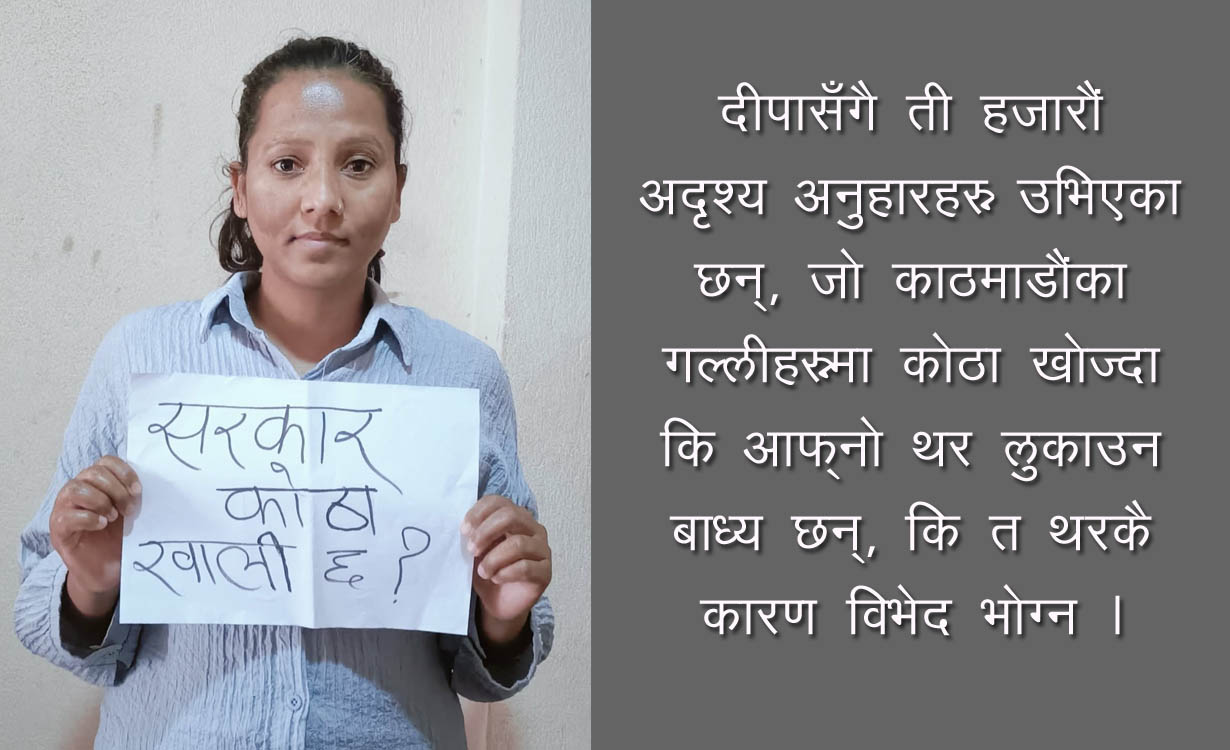 सरकार
कोठा
खाली छ ?
दीपासँगै ती हजारौं
अदृश्य अनुहारहरु उभिएका
छन्, जो काठमाडौंका
गल्लीहरुमा कोठा खोज्दा
कि आफ्नो थर लुकाउन
बाध्य छन्, कि त थरकै
कारण विभेद भोग्न ।